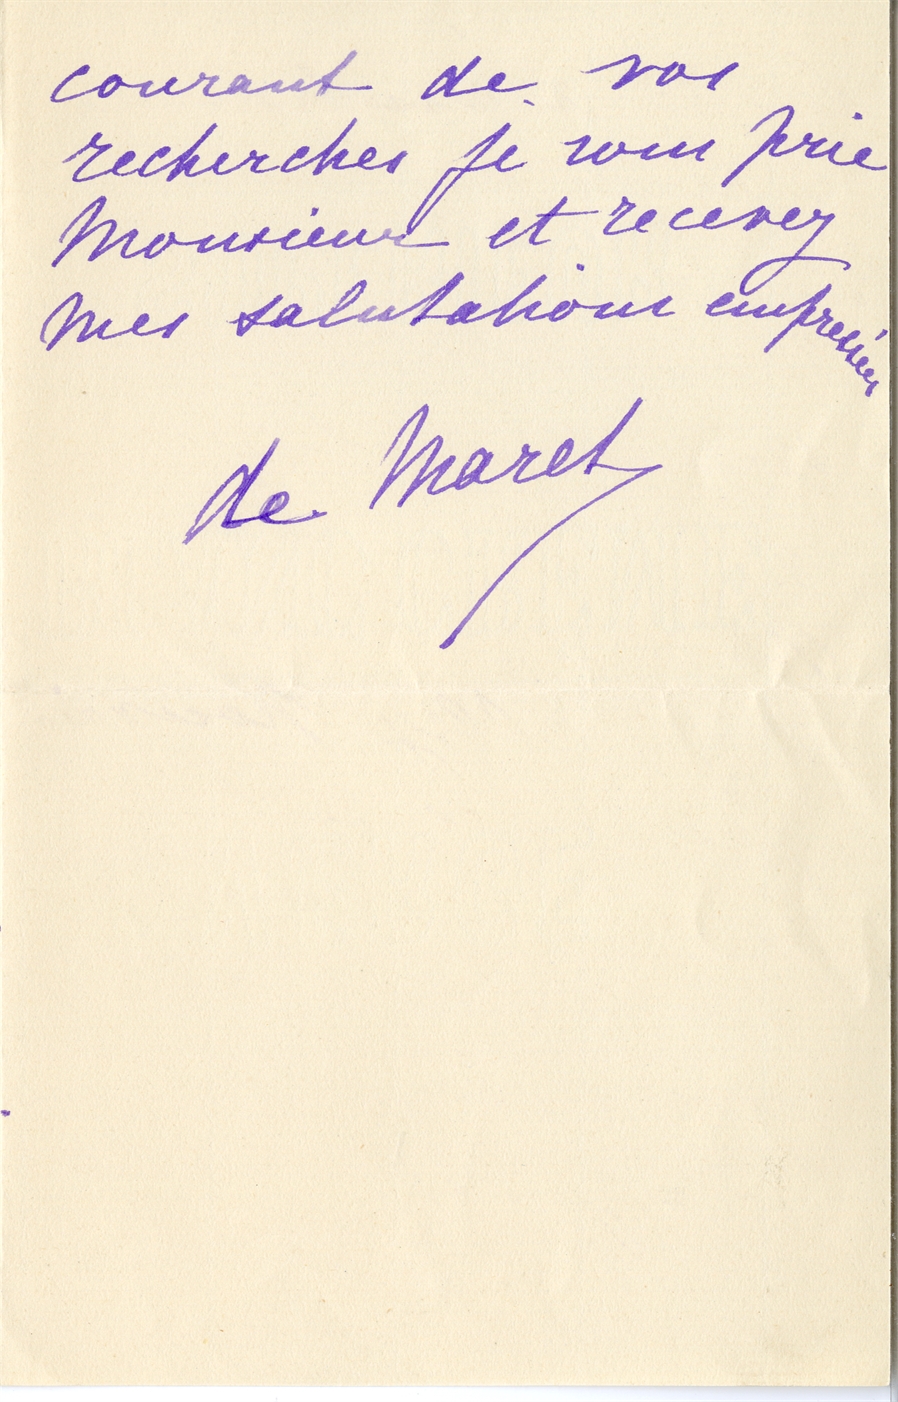 courant de vos
recherches je vous prie
Monsieur et recevez
mes salutations empressées
de Maret